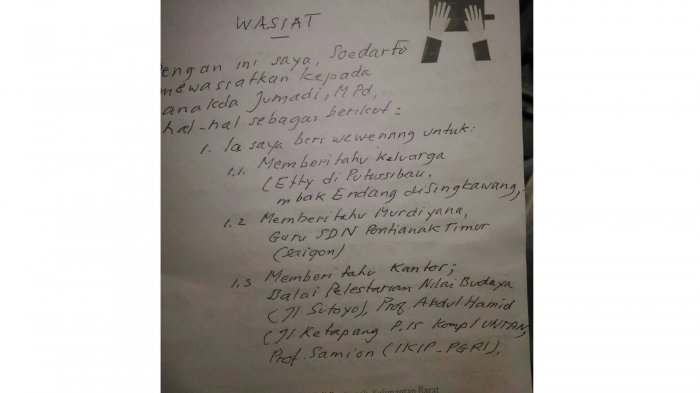 WASIAT
Dengan ini saya, Soedarto
mewasiatkan kepada
anakda Jumadi, M.Pd,
hal-hal sebagai berikut:
1. Ia saya beri wewenang untuk:
1.1. Memberitahu keluarga
(Etty di Putussibau,
mbak Endang di Singkawang,
1.2 Memberitahu Murdiyana,
Guru SDN Pontianak Timur
(Saigon)
1.3 Memberitahu Kantor;
Balai Pelestarian Nilai Budaya
(Jl Sutoyo), Prof. Abdul Hamid
(Jl. Ketapang P.15 Kompl UNTAN,
Prof. Samion (IKIP-PGRI),
Kalimantan Barat